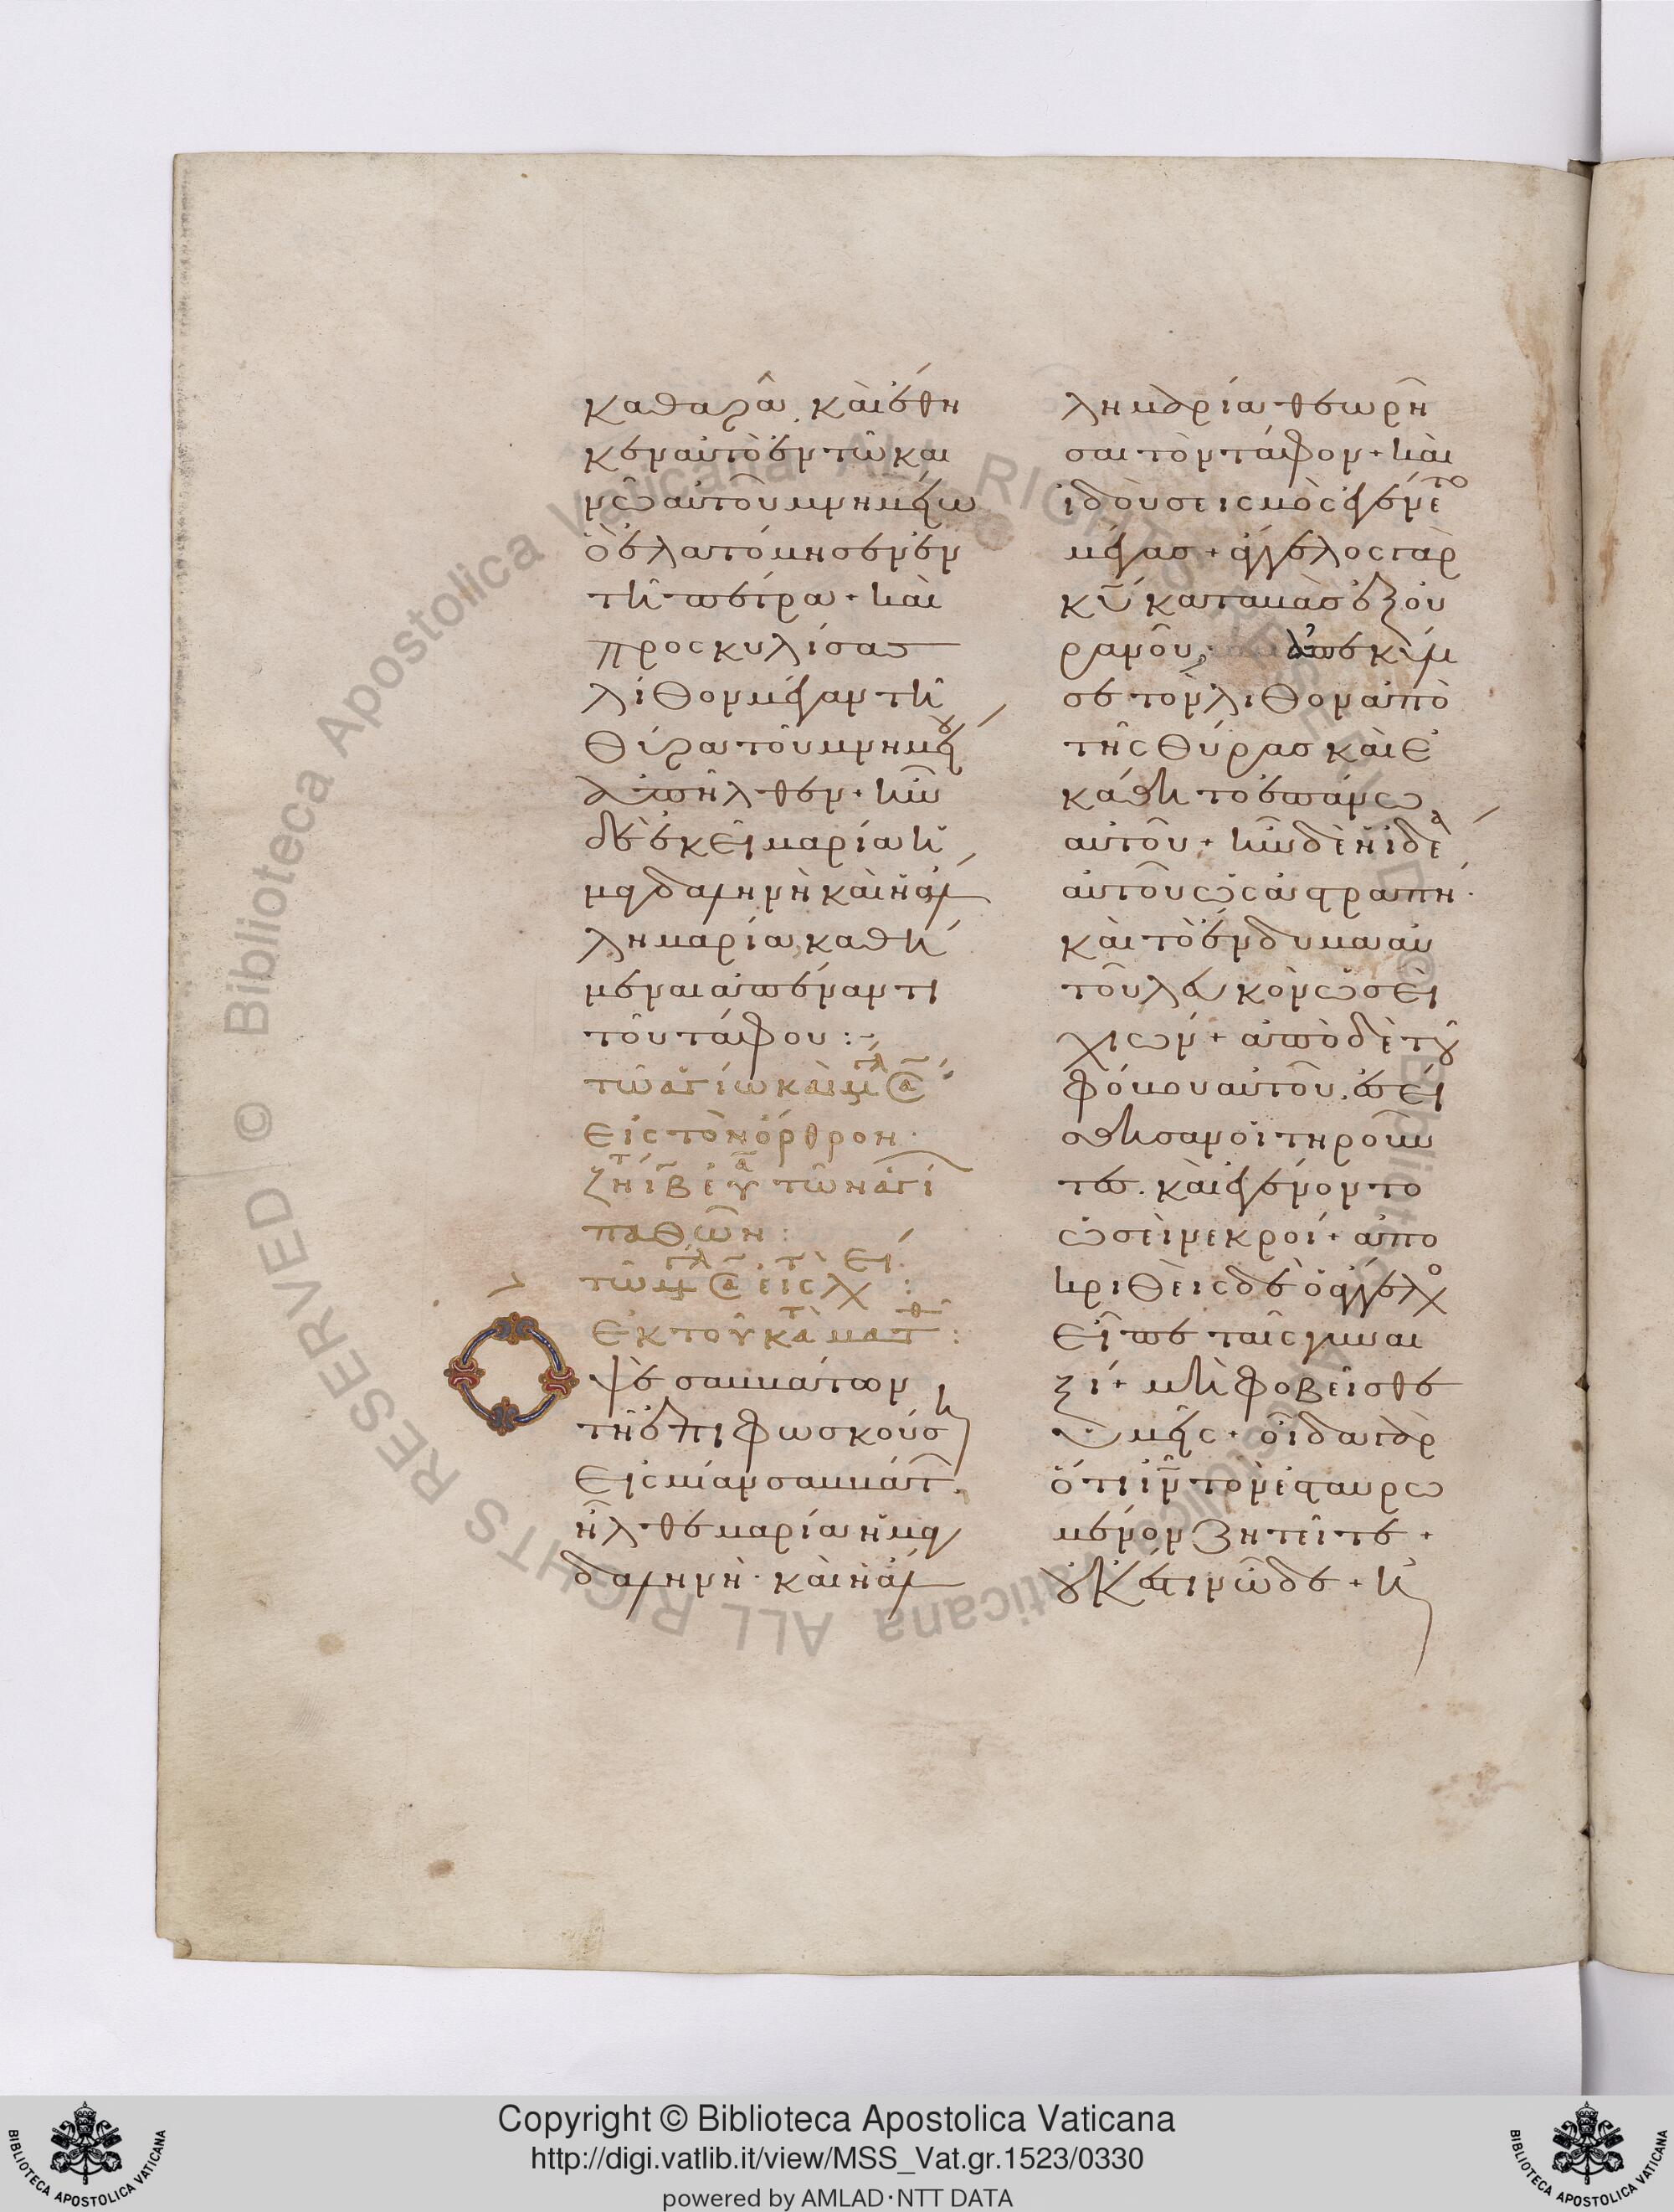 καθαρᾶ. καὶ ἔθη
κεν αὐτὸ ἐν τῶ και
νῶ αὐτοῦ μνημείω
ὃ ἐλατόμησεν ἐν
τῆ πέτρα + καὶ
προσκυλίσας
λίθον μέγαν τῆ
θύρα τοῦ μνημείου
ἀπῆλθεν + ἦν
δὲ ἐκεῖ μαρία ἡ
μαγδαληνὴ καὶ ἡ ἄλ
λη μαρία καθή
μεναι ἀπέναντι
τοῦ τάφου :-
τῶ ἁγίω καὶ μγλ σα
εἰς τὸν ὄρθρον
ζητ ιβ ευα τῶν ἁγί
παθῶν :
τῶ μγλ σα εἰς τ λειχ :
ἐκ τοῦ κατὰ ματθ :
Οψὲ σαββάτων
τῆ ἐπιφωσκούση
εἰς μίαν σαββάτ.
ἦλθε μαρία ἡ μαγ
δαληνὴ. καὶ ἡ ἄλ
λη μαρία θεωρῆ
σαι τὸν τάφον + καὶ
ἰδοὺ σεισμὸς ἐγένετο
μέγας + ἄγγελος γὰρ
κυ καταβὰς ἐξ οὐ
ρανοῦ, ἀπεκύλι
σε τὸν λίθον ἀπὸ
τῆς θύρας καὶ ἐ
κάθητο ἐπάνω
αὐτοῦ + ἦν δὲ ἡ ἰδέα
αὐτοῦ ὡς ἀστραπή.
καὶ τὸ ἔνδυμα αὐ
τοῦ λευκὸν ὡσεὶ
χιών + ἀπὸ δὲ τοῦ
φόβου αὐτοῦ. ἐσεί
σθησαν οἱ τηροῦν
τες. καὶ ἐγένοντο
ὡσεὶ νεκροί + ἀπο
κριθεὶς δὲ ὁ ἄγγελος
εἶπε ταῖς γυναι
ξί + μὴ φοβεῖσθε
ὑμεῖς + οἶδα γὰρ
ὅτι ιν τὸν ἐσταυρω
μένον ζητεῖτε +
οὐκ ἔστιν ὧδε + ἠ